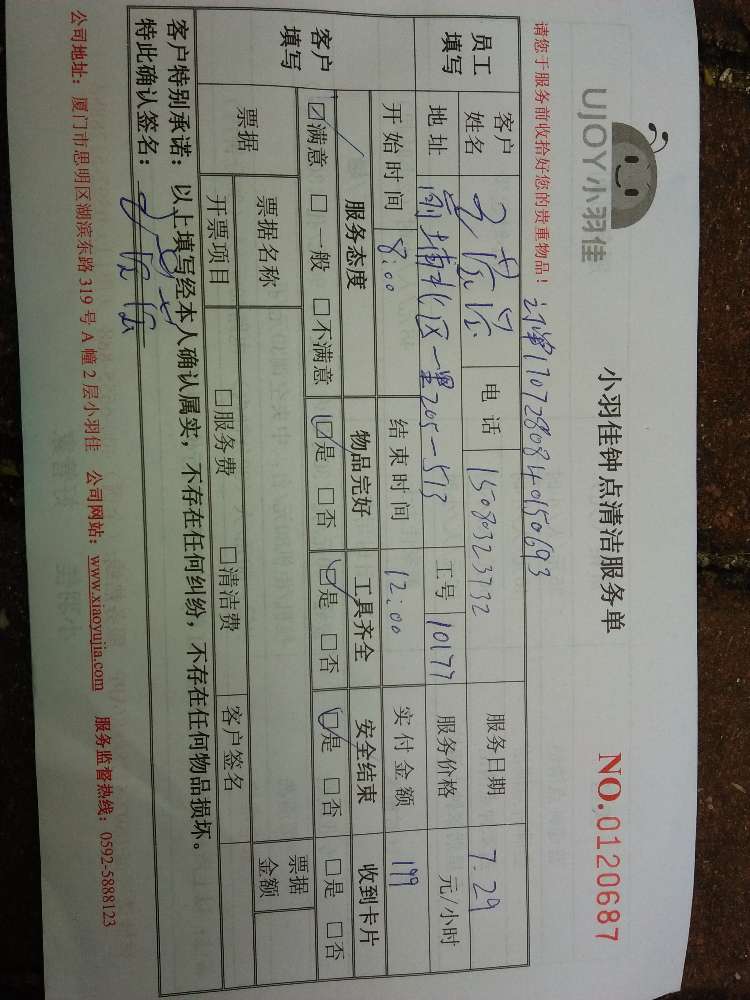 UJOY小羽佳
小羽佳钟点清洁服务单
NO.0120687
请您于服务前收拾好您的贵重物品！
订单170728084050693
员工填写 客户姓名 电话 15080323732 服务日期 7.29
地址 北区一里205-513 工号 10177 服务价格 元/小时
开始时间 8:00 结束时间 12:00 实付金额 199
客户填写 服务态度 物品完好 工具齐全 安全结束 收到卡片
☑满意 □一般 □不满意 ☑是 □否 ☑是 □否 ☑是 □否 □是 □否
票据 票据名称 票据金额
开票项目 □服务费 □清洁费 客户签名
客户特别承诺：以上填写经本人确认属实，不存在任何纠纷，不存在任何物品损坏。
特此确认签名：
公司地址：厦门市思明区湖滨东路319号A幢2层小羽佳 公司网站：www.xiaoyujia.com 服务监督热线：0592-5888123